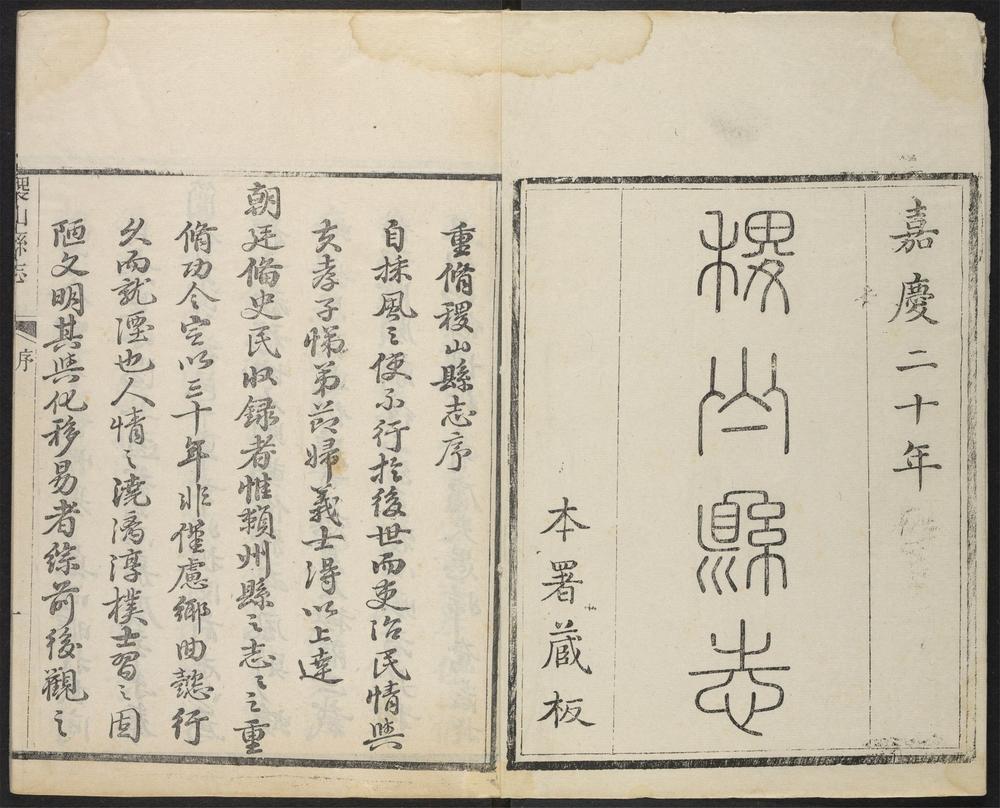 嘉慶二十年
稷山縣志
本署蔵板
重脩稷山縣志序
自採風之便不行於後世而吏治民情與
夫孝子悌弟節婦義士得以上達
朝廷備史民収録者惟賴州縣之志之之重
脩功令定以三十年非僅慮鄉曲懿行
久而就湮也人情之澆漓淳樸士習之固
陋文明其與化移易者綜前後觀之
稷山縣志
序
一